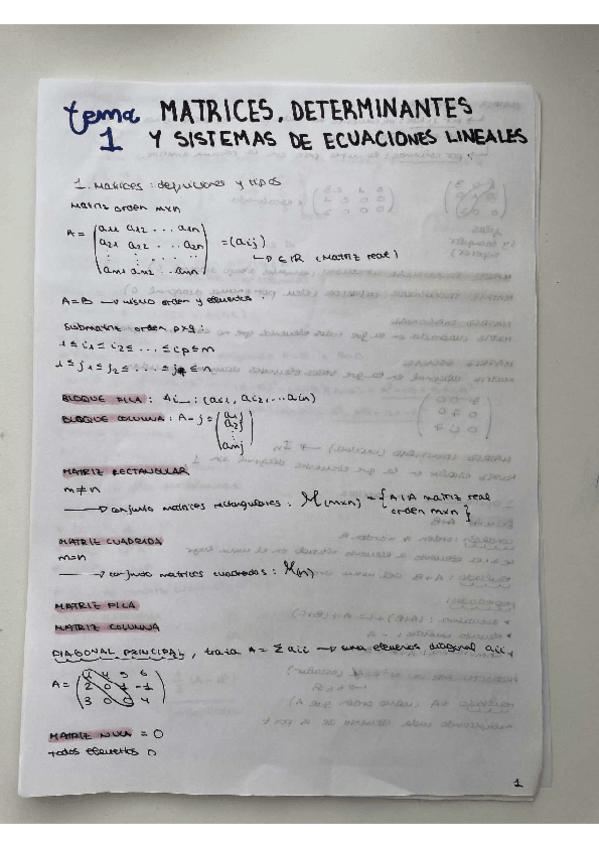 tema MATRICES, DETERMINANTES
1 Y SISTEMAS DE ECUACIONES LINEALES
1. Matrices: definiciones y tipos
Matriz orden mxn
A = (a11 a12 ... a1n
a21 a22 ... a2n
am1 am2 ... amn) = (aij)
↳ ∈ IR (Matriz real)
A=B → mismo orden y elementos.
Submatriz orden pxq:
1 ≤ i1 ≤ i2 ≤ ... ≤ ip ≤ m
1 ≤ j1 ≤ j2 ≤ ... ≤ jq ≤ n
BLOQUE FILA: Ai_: (ai1, ai2, ... ain)
BLOQUE COLUMNA: A-j = (a1j
a2j
⋮
amj)
MATRIZ RECTANGULAR
m≠n
→ conjunto matrices rectangulares: M(mxn) = {A|A matriz real
orden mxn}
MATRIZ CUADRADA
m=n
→ conjunto matrices cuadradas: M(n)
MATRIZ FILA
MATRIZ COLUMNA
DIAGONAL PRINCIPAL, traza A = Σ aii → suma elementos diagonal aii
A = (1 4 5 6
2 0 1 -1
3 0 0 4)
MATRIZ NULA = 0
todos elementos 0
1